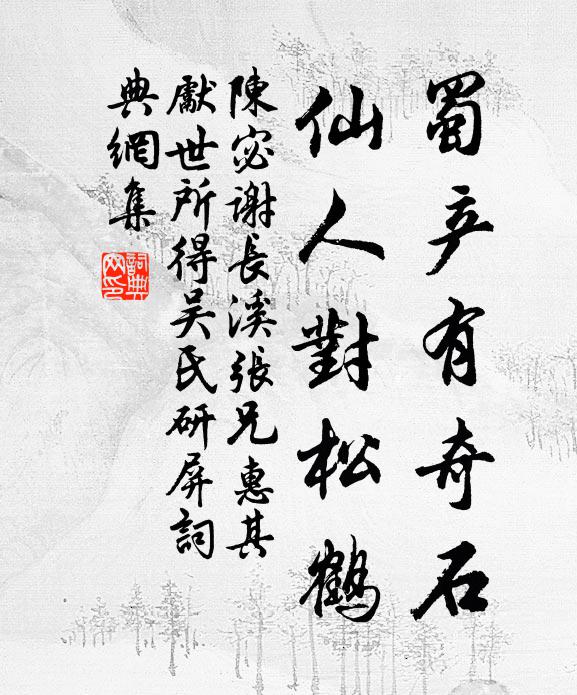 蜀产有奇石
仙人對松鶴
陳宓谢長溪張兄惠其
獻世所得吴氏研屏詞
典網集
詞典
网印